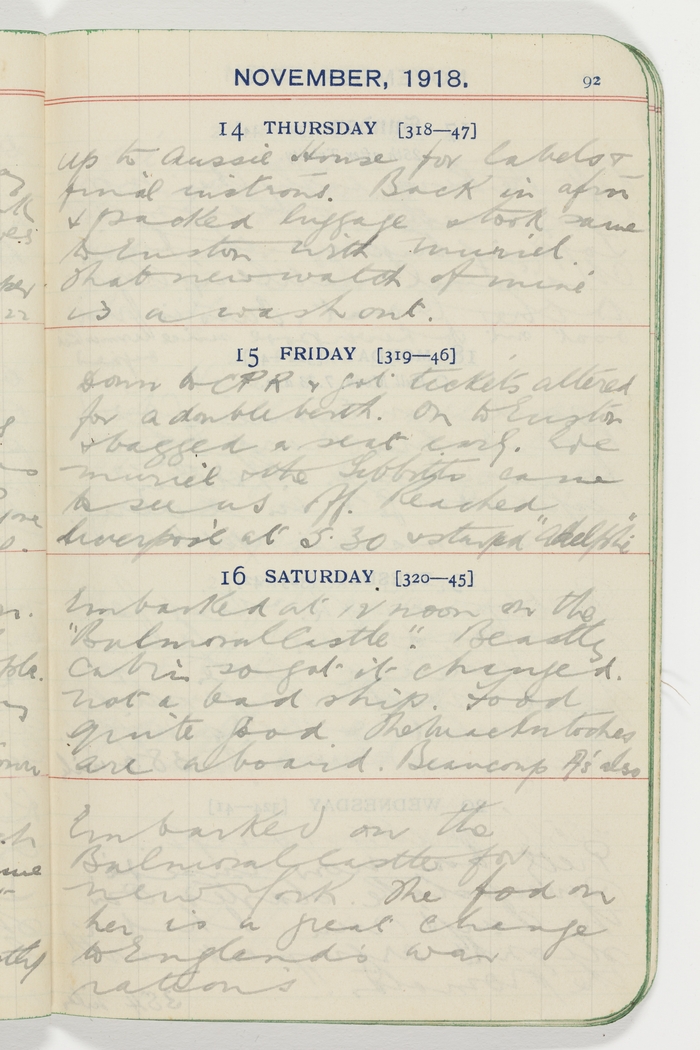 NOVEMBER, 1918.
92
14 THURSDAY [318—47]
up to Aussie House for labels &
final instrons. Back in afrn
& packed luggage & took same
to Euston with Muriel.
That new watch of mine
is a wash out.
15 FRIDAY [319—46]
Down to CPR & got tickets altered
for a double birth. On to Euston
& bagged a seat early.
Muriel & the came
to see us off. Reached
Liverpool at 5.30 & stayed "Adelphi"
16 SATURDAY [320—45]
Embarked at 12 noon on the
"Balmoral Castle". Beastly
cabin so got it changed.
Not a bad ship. Food
quite good The MacIntoshes
are aboard. Beaucoup A's also
Embarked on the
Balmoral Castle for
New York. The food on
her is a great change
to England's war
rations